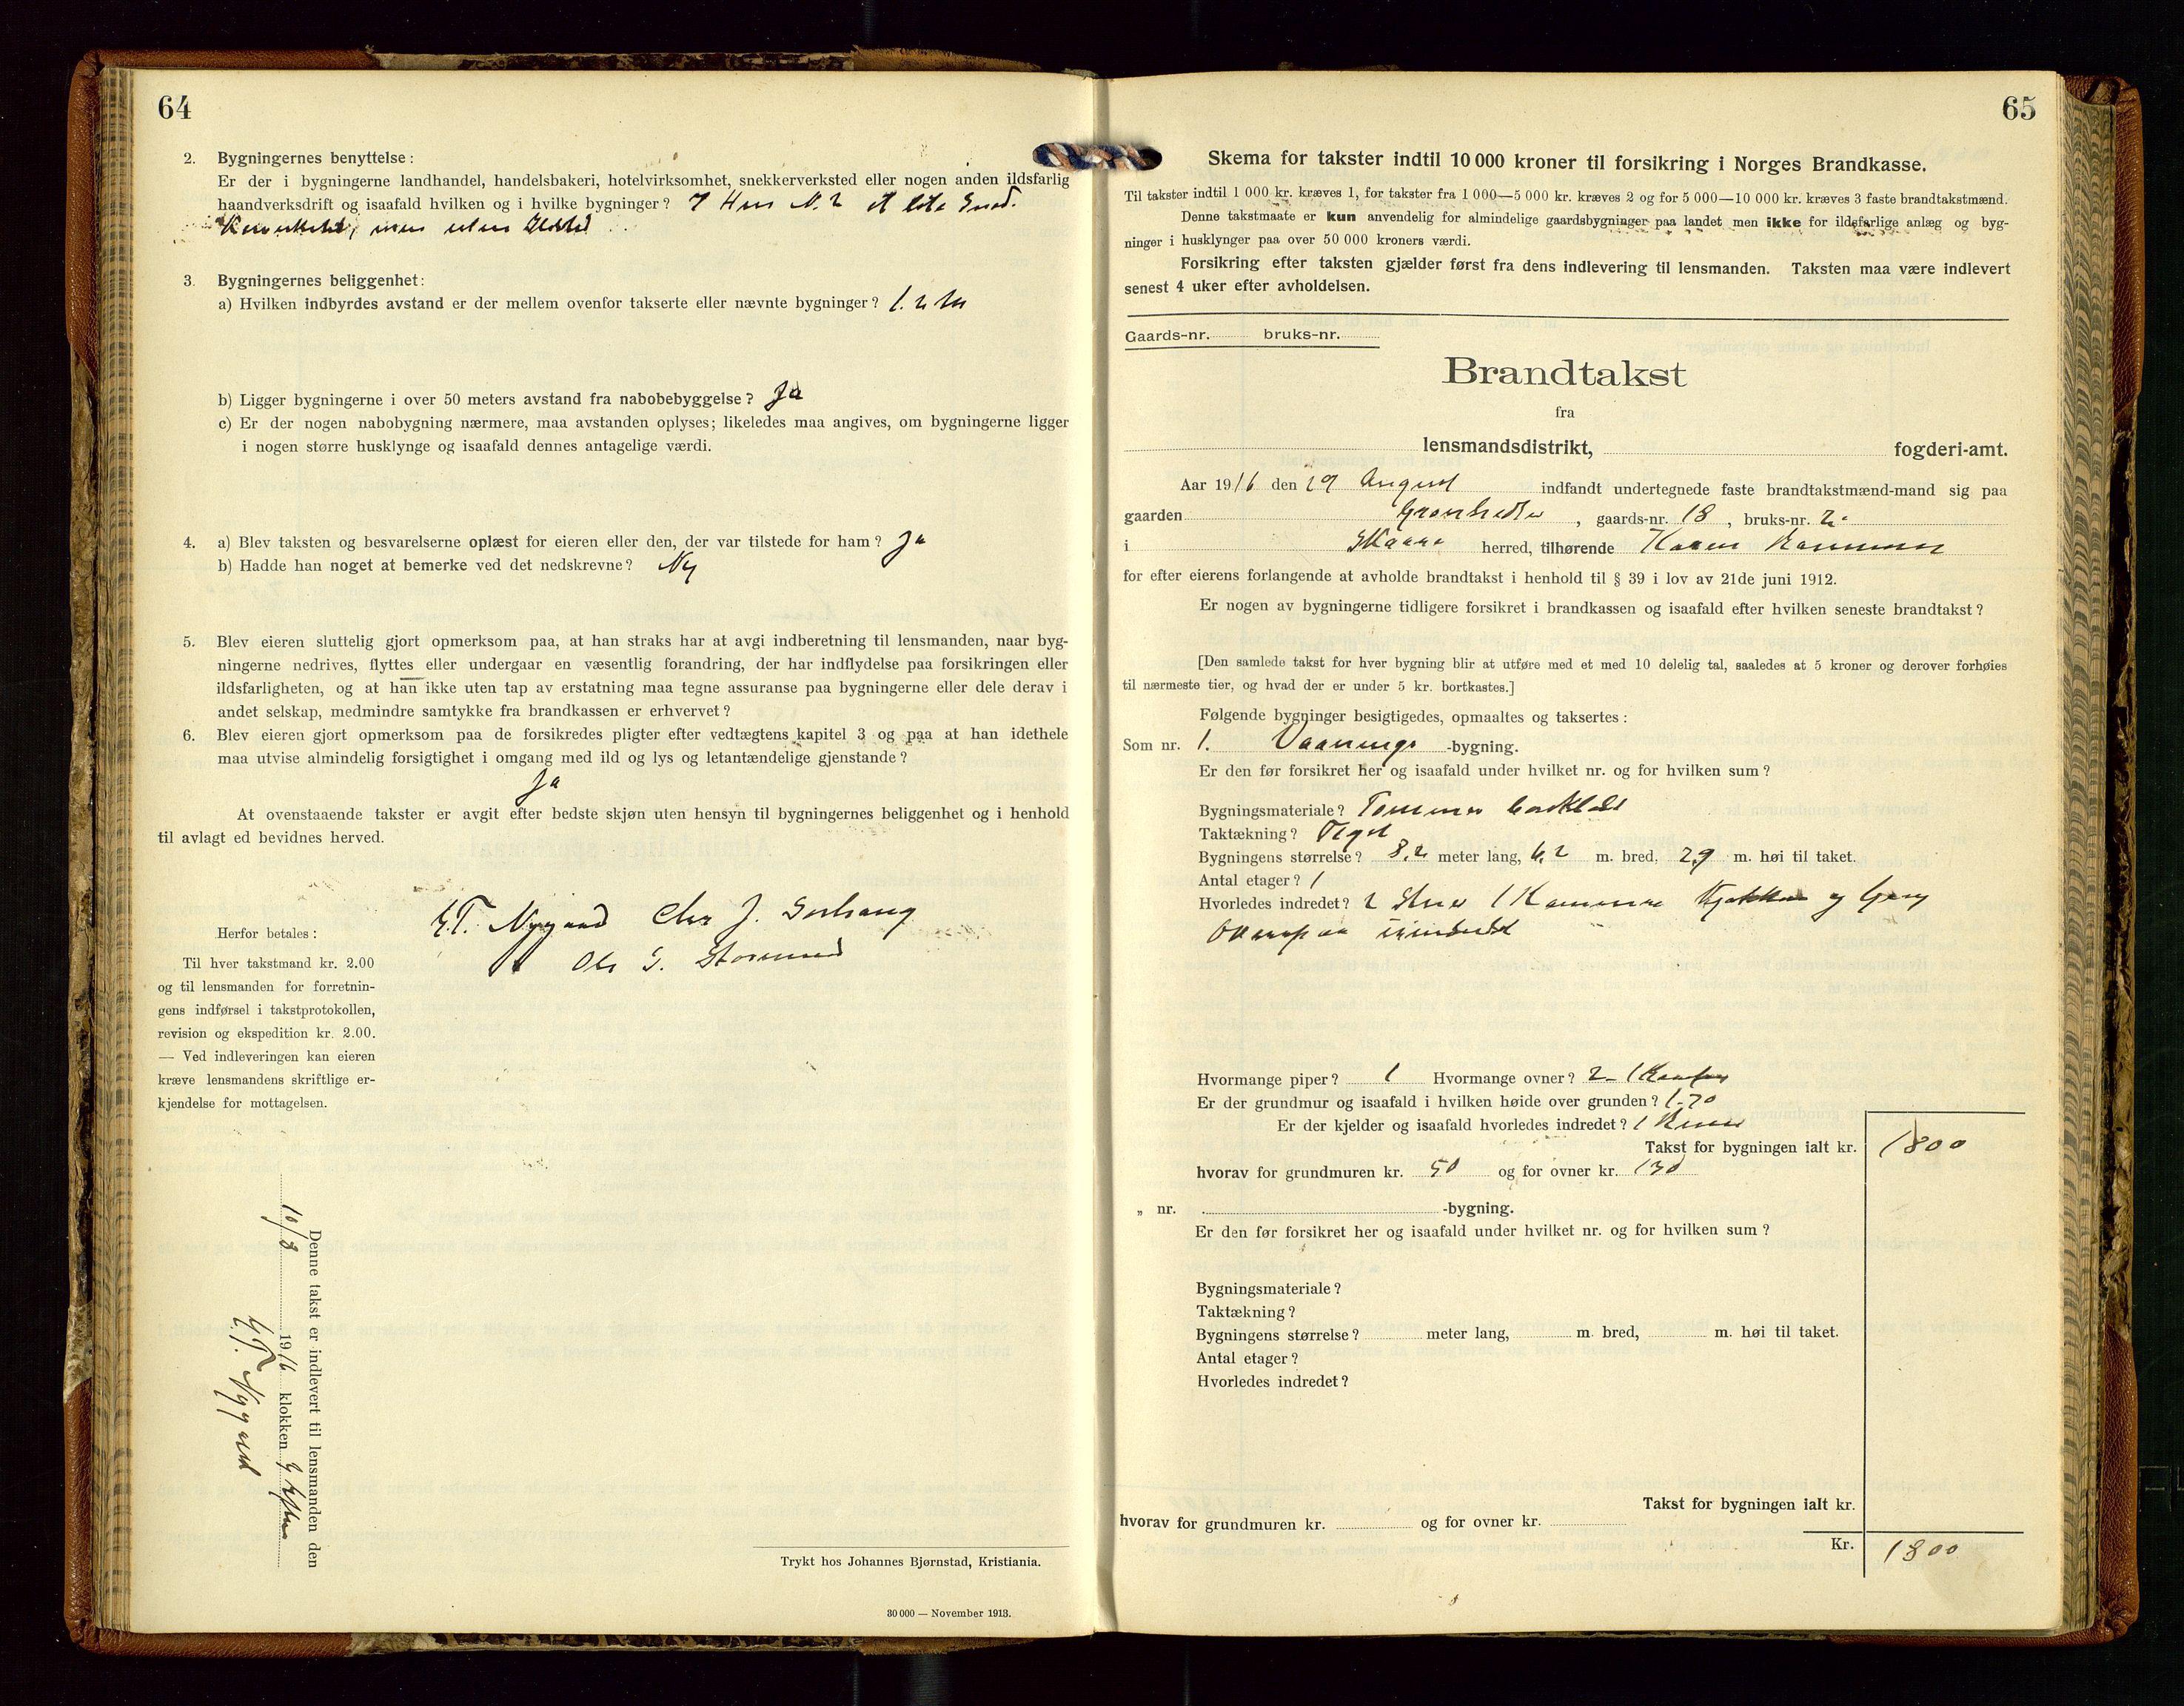 64
2. Bygningernes benyttelse:
Er der i bygningerne landhandel, handelsbakeri, hotelvirksomhet, snekkerverksted eller nogen anden ildsfarlig
haandverksdrift og isaafald hvilken og i hvilke bygninger? I Hus N. 2 et lite
men uten Ildsted
3. Bygningernes beliggenhet:
a) Hvilken indbyrdes avstand er der mellem ovenfor takserte eller nævnte bygninger?
b) Ligger bygningerne i over 50 meters avstand fra nabobebyggelse? Ja
c) Er der nogen nabobygning nærmere, maa avstanden oplyses; likeledes maa angives, om bygningerne ligger
i nogen større husklynge og isaafald dennes antagelige værdi.
4. a) Blev taksten og besvarelserne oplæst for eieren eller den, der var tilstede for ham? Ja
b) Hadde han noget at bemerke ved det nedskrevne? Nej
5. Blev eieren sluttelig gjort opmerksom paa, at han straks har at avgi indberetning til lensmanden, naar byg-
ningerne nedrives, flyttes eller undergaar en væsentlig forandring, der har indflydelse paa forsikringen eller
ildsfarligheten, og at han ikke uten tap av erstatning maa tegne assuranse paa bygningerne eller dele derav i
andet selskap, medmindre samtykke fra brandkassen er erhvervet?
6. Blev eieren gjort opmerksom paa de forsikredes pligter efter vedtægtens kapitel 3 og paa at han idethele
maa utvise almindelig forsigtighet i omgang med ild og lys og letantændelige gjenstande?
Ja
At ovenstaaende takster er avgit efter bedste skjøn uten hensyn til bygningernes beliggenhet og i henhold
til avlagt ed bevidnes herved.
Nygaard Chr J.
Ole S.
Herfor betales:
Til hver takstmand kr. 2.00
og til lensmanden for forretnin-
gens indførsel i takstprotokollen,
revision og ekspedition kr. 2.00.
— Ved indleveringen kan eieren
kræve lensmandens skriftlige er-
kjendelse for mottagelsen.
Denne takst er indlevert til lensmanden den
10/8 1916 klokken
Nygaard
Trykt hos Johannes Bjørnstad, Kristiania.
30 000 — November 1913.
65
Skema for takster indtil 10 000 kroner til forsikring i Norges Brandkasse.
Til takster indtil 1 000 kr. kræves 1, for takster fra 1 000—5 000 kr. kræves 2 og for 5 000—10 000 kr. kræves 3 faste brandtakstmænd.
Denne takstmaate er kun anvendelig for almindelige gaardsbygninger paa landet men ikke for ildsfarlige anlæg og byg-
ninger i husklynger paa over 50 000 kroners værdi.
Forsikring efter taksten gjælder først fra dens indlevering til lensmanden. Taksten maa være indlevert
senest 4 uker efter avholdelsen.
Gaards-nr. bruks-nr.
Brandtakst
fra
lensmandsdistrikt, fogderi-amt.
Aar 1916 den August indfandt undertegnede faste brandtakstmænd-mand sig paa
gaarden , gaards-nr. 18 , bruks-nr. 2
i Skaare herred, tilhørende Karen
for efter eierens forlangende at avholde brandtakst i henhold til § 39 i lov av 21de juni 1912.
Er nogen av bygningerne tidligere forsikret i brandkassen og isaafald efter hvilken seneste brandtakst?
[Den samlede takst for hver bygning blir at utføre med et med 10 delelig tal, saaledes at 5 kroner og derover forhøies
til nærmeste tier, og hvad der er under 5 kr. bortkastes.]
Følgende bygninger besigtigedes, opmaaltes og taksertes:
Som nr. 1. Vaanings -bygning.
Er den før forsikret her og isaafald under hvilket nr. og for hvilken sum?
Bygningsmateriale? Tømmer bordklædt
Taktækning? Tegel
Bygningens størrelse? 8,2 meter lang, 6,2 m. bred, 2,9 m. høi til taket.
Antal etager? 1
Hvorledes indredet? 2 Stuer 1 Kammer Kjøkken og Gang
uindredet
Hvormange piper? 1 Hvormange ovner? 2 - 1
Er der grundmur og isaafald i hvilken høide over grunden? 1.70
Er der kjelder og isaafald hvorledes indredet? 1
Takst for bygningen ialt kr. 1800
hvorav for grundmuren kr. 50 og for ovner kr. 130
„ nr. -bygning.
Er den før forsikret her og isaafald under hvilket nr. og for hvilken sum?
Bygningsmateriale?
Taktækning?
Bygningens størrelse? meter lang, m. bred, m. høi til taket.
Antal etager?
Hvorledes indredet?
Takst for bygningen ialt kr.
hvorav for grundmuren kr. og for ovner kr.
Kr. 1800